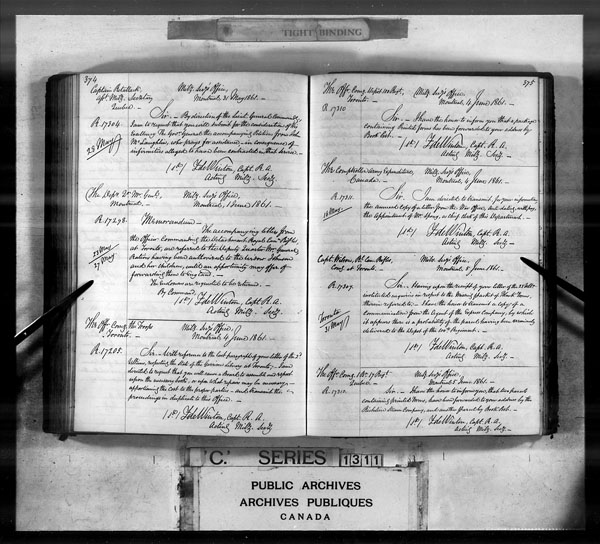 TIGHT BINDING
374
Captain Retallack Milty. Secy's Office,
Asst. Milty. Secretary Montreal 31 May 1861. —
Quebec. —
R. 17304. Sir. — By direction of the Lieut. General Commanding
I am to request that you will submit for the consideration of His
Excellency the Govr. General the accompanying Petition from John
McLaughlin, who prays for in consequence of
infirmities alleged to have been contracted in that Service. —
23 May
(sd) F. de Winton, Capt. R. A.
Acting Milty. Secty.
The Depy. Qr. Mr. Genl., Milty. Secy's Office,
Montreal. Montreal, 1 June 1861. —
R. 17298. Memorandum —
The accompanying letter from
the Officer Commanding the Detachment Royal Can. Rifles
at Toronto, is referred to the Depy. Quarter Mr. General
Rations having been authorized to the widow Johnson
and her children, until an opportunity may offer of
forwarding them to England. —
The enclosures are requested to be returned. —
By Command,
27 May
(sd) F. de Winton, Capt. R. A.
Acting Milty. Secty.
The Off. Comg. the Troops Milty. Secy's Office,
Toronto. — Montreal 4 June 1861. —
R. 17205. Sir. — With reference to the last paragraph of your letter of the
Ultimo, reporting the state of the Garrison Library at Toronto, — I am
directed to request that you will cause a Board to assemble and report
upon the necessary books, or upon what repairs may be necessary —
apportioning the cost to the proper parties — and transmit the
proceedings in duplicate to this Office. —
(sd) F. de Winton, Capt. R. A.
Acting Milty. Secty.
375
The Off. Comg. Depôt 100 Regt., Milty. Secy's Office,
Toronto. — Montreal, 4 June 1861. —
R. 17310 Sir. — I have the honor to inform you that a package
containing Printed forms has been forwarded to your address by
Book Post. —
(sd) F. de Winton, Capt. R. A.
Acting Milty. Secty. —
The Comptroller Army Expenditure, Milty. Secy's Office,
Canada. — Montreal, 4 June, 1861. —
R. 17311. Sir, I am directed to transmit, for your information
the annexed copy of a letter from the War Office, dated
the appointment of Mr. Spong, as Chief Clerk of this Department. —
16 May
(sd) F. de Winton, Capt. R. A.
Acting Milty. Secty. —
Capt. Gibson, Rl. Can. Rifles, Milty. Secy's Office,
Comg. at Toronto. Montreal 5 June, 1861. —
R. 17307. Sir. Having upon the receipt of your letter of the
instituted enquiries in respect to the Missing packet of Blank Forms,
therein referred to, I have the honor to transmit a copy of a
communication from the Agent of the Express Company, by which
it appears there is a probability of the parcel having been erroneously
delivered to the Depôt of the 100th. Regiment. —
Toronto
31 May
(sd) F. de Winton, Capt. R. A.
Acting Milty. Secty. —
The Off. Comg. 1 Bn. 17 Regt., Milty. Secy's Office,
Quebec. Montreal 5 June, 1861. —
R. 17310. Sir. — I have the honor to inform you, that two parcels
containing printed Forms, have been forwarded to your address by the
Richelieu Steam Company, and another parcel by Book Post. —
(sd) F. de Winton, Capt. R. A.
Acting Milty. Secty. —
'C.' SERIES 1311
PUBLIC ARCHIVES
ARCHIVES PUBLIQUES
CANADA